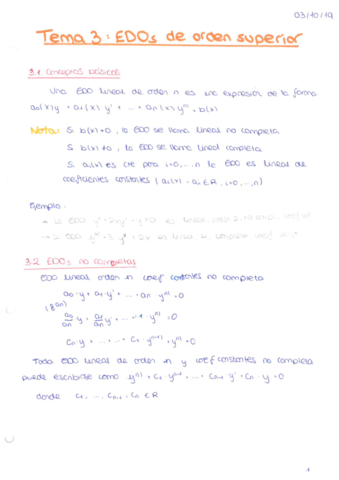 03/10/19
Tema 3: EDOs de orden superior
3.1 Conceptos básicos
Una EDO lineal de orden n es una expresión de la forma
a₀(x)y + a₁(x)y' + ... + aₙ(x)yⁿ⁾ = b(x)
Nota: Si b(x)=0, la EDO se llama lineal no completa
Si b(x)≠0, la EDO se llama lineal completa
Si aᵢ(x) es cte para i=0,...,n la EDO es lineal de
coeficientes constantes (aᵢ(x) = aᵢ ∈ R, i=0,...,n)
Ejemplo:
→ La EDO es lineal
→ La EDO
3.2 EDOs no completas
EDO lineal orden n coef constantes no completa
a₀·y + a₁·y' + ... aₙ yⁿ⁾ = 0
a₀/aₙ y + a₁/aₙ y' + ... + yⁿ⁾ = 0
Cₙ·y + ... + C₁·yⁿ⁻¹⁾ + yⁿ⁾ = 0
Toda EDO lineal de orden n y coef constantes no completa
puede escribirse como yⁿ⁾ + C₁·yⁿ⁻¹⁾ + ... + Cₙ₋₁·y' + Cₙ·y = 0
donde C₁, ..., Cₙ₋₁, Cₙ ∈ R